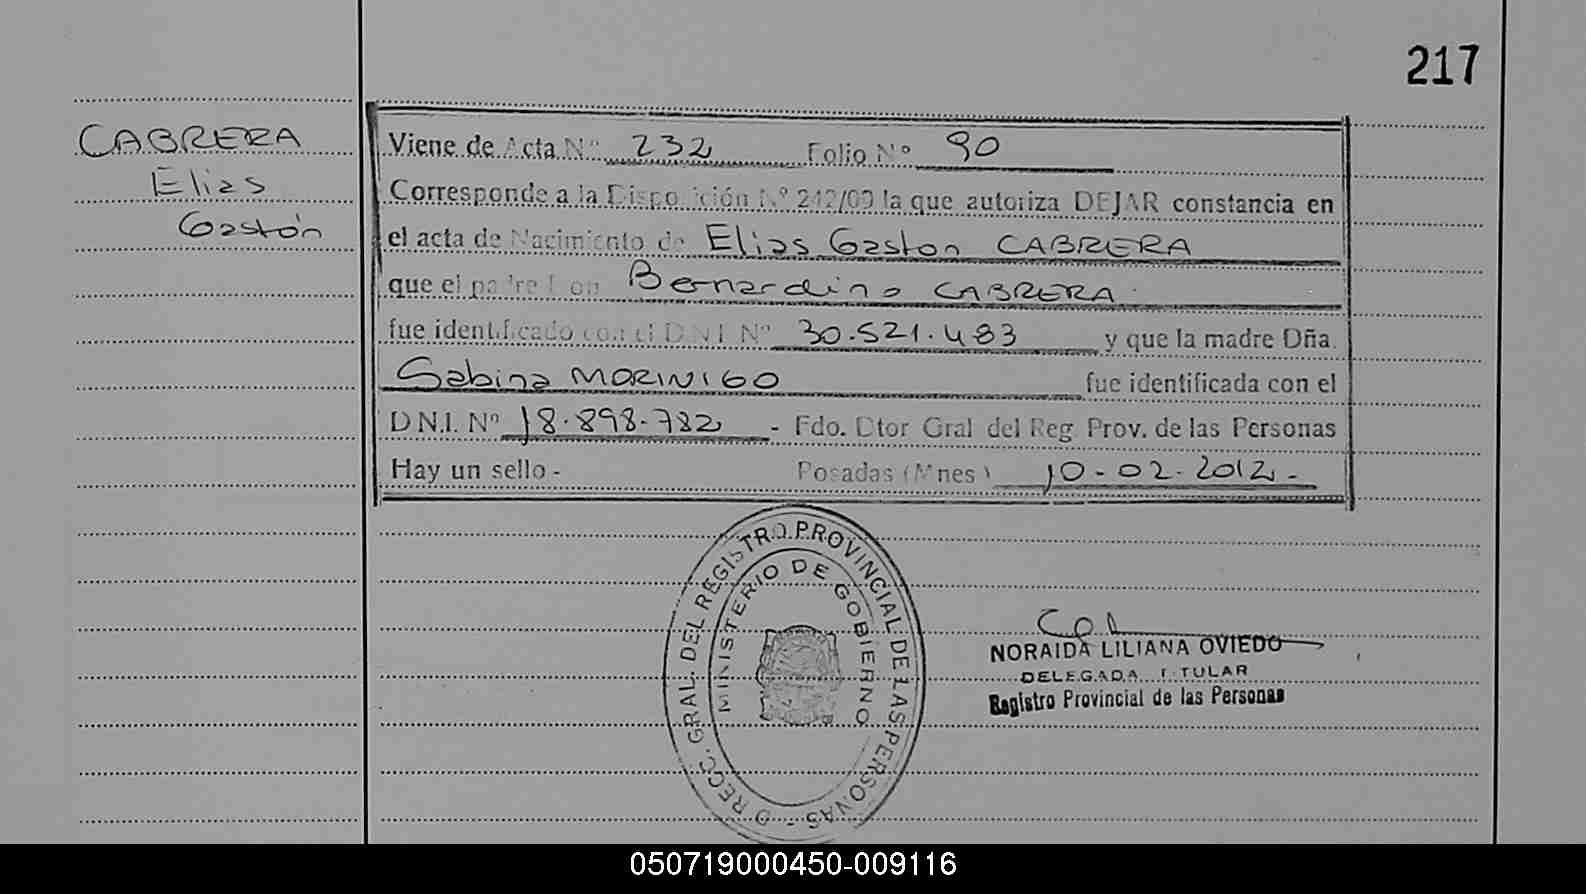 217
CABRERA
Elias
Gastón
Viene de Acta Nº 232 Folio Nº 90
Corresponde a la Disposición Nº 242/09 la que autoriza DEJAR constancia en
el acta de Nacimiento de Elias Gaston CABRERA
que el padre Don Bernardino CABRERA
fue identificado con el D.N.I. Nº 30.521.483 y que la madre Dña.
Sabina MORINIGO fue identificada con el
D N.I. Nº 18.898.782 - Fdo. Dtor Gral del Reg Prov. de las Personas
Hay un sello - Posadas (Mnes) 10-02-2012.-
D RECC. GRAL. DEL REGISTRO PROVINCIAL DE LAS PERSONAS -
MINISTERIO DE GOBIERNO
NORAIDA LILIANA OVIEDO
DELEGADA TITULAR
Registro Provincial de las Personas
050719000450-009116